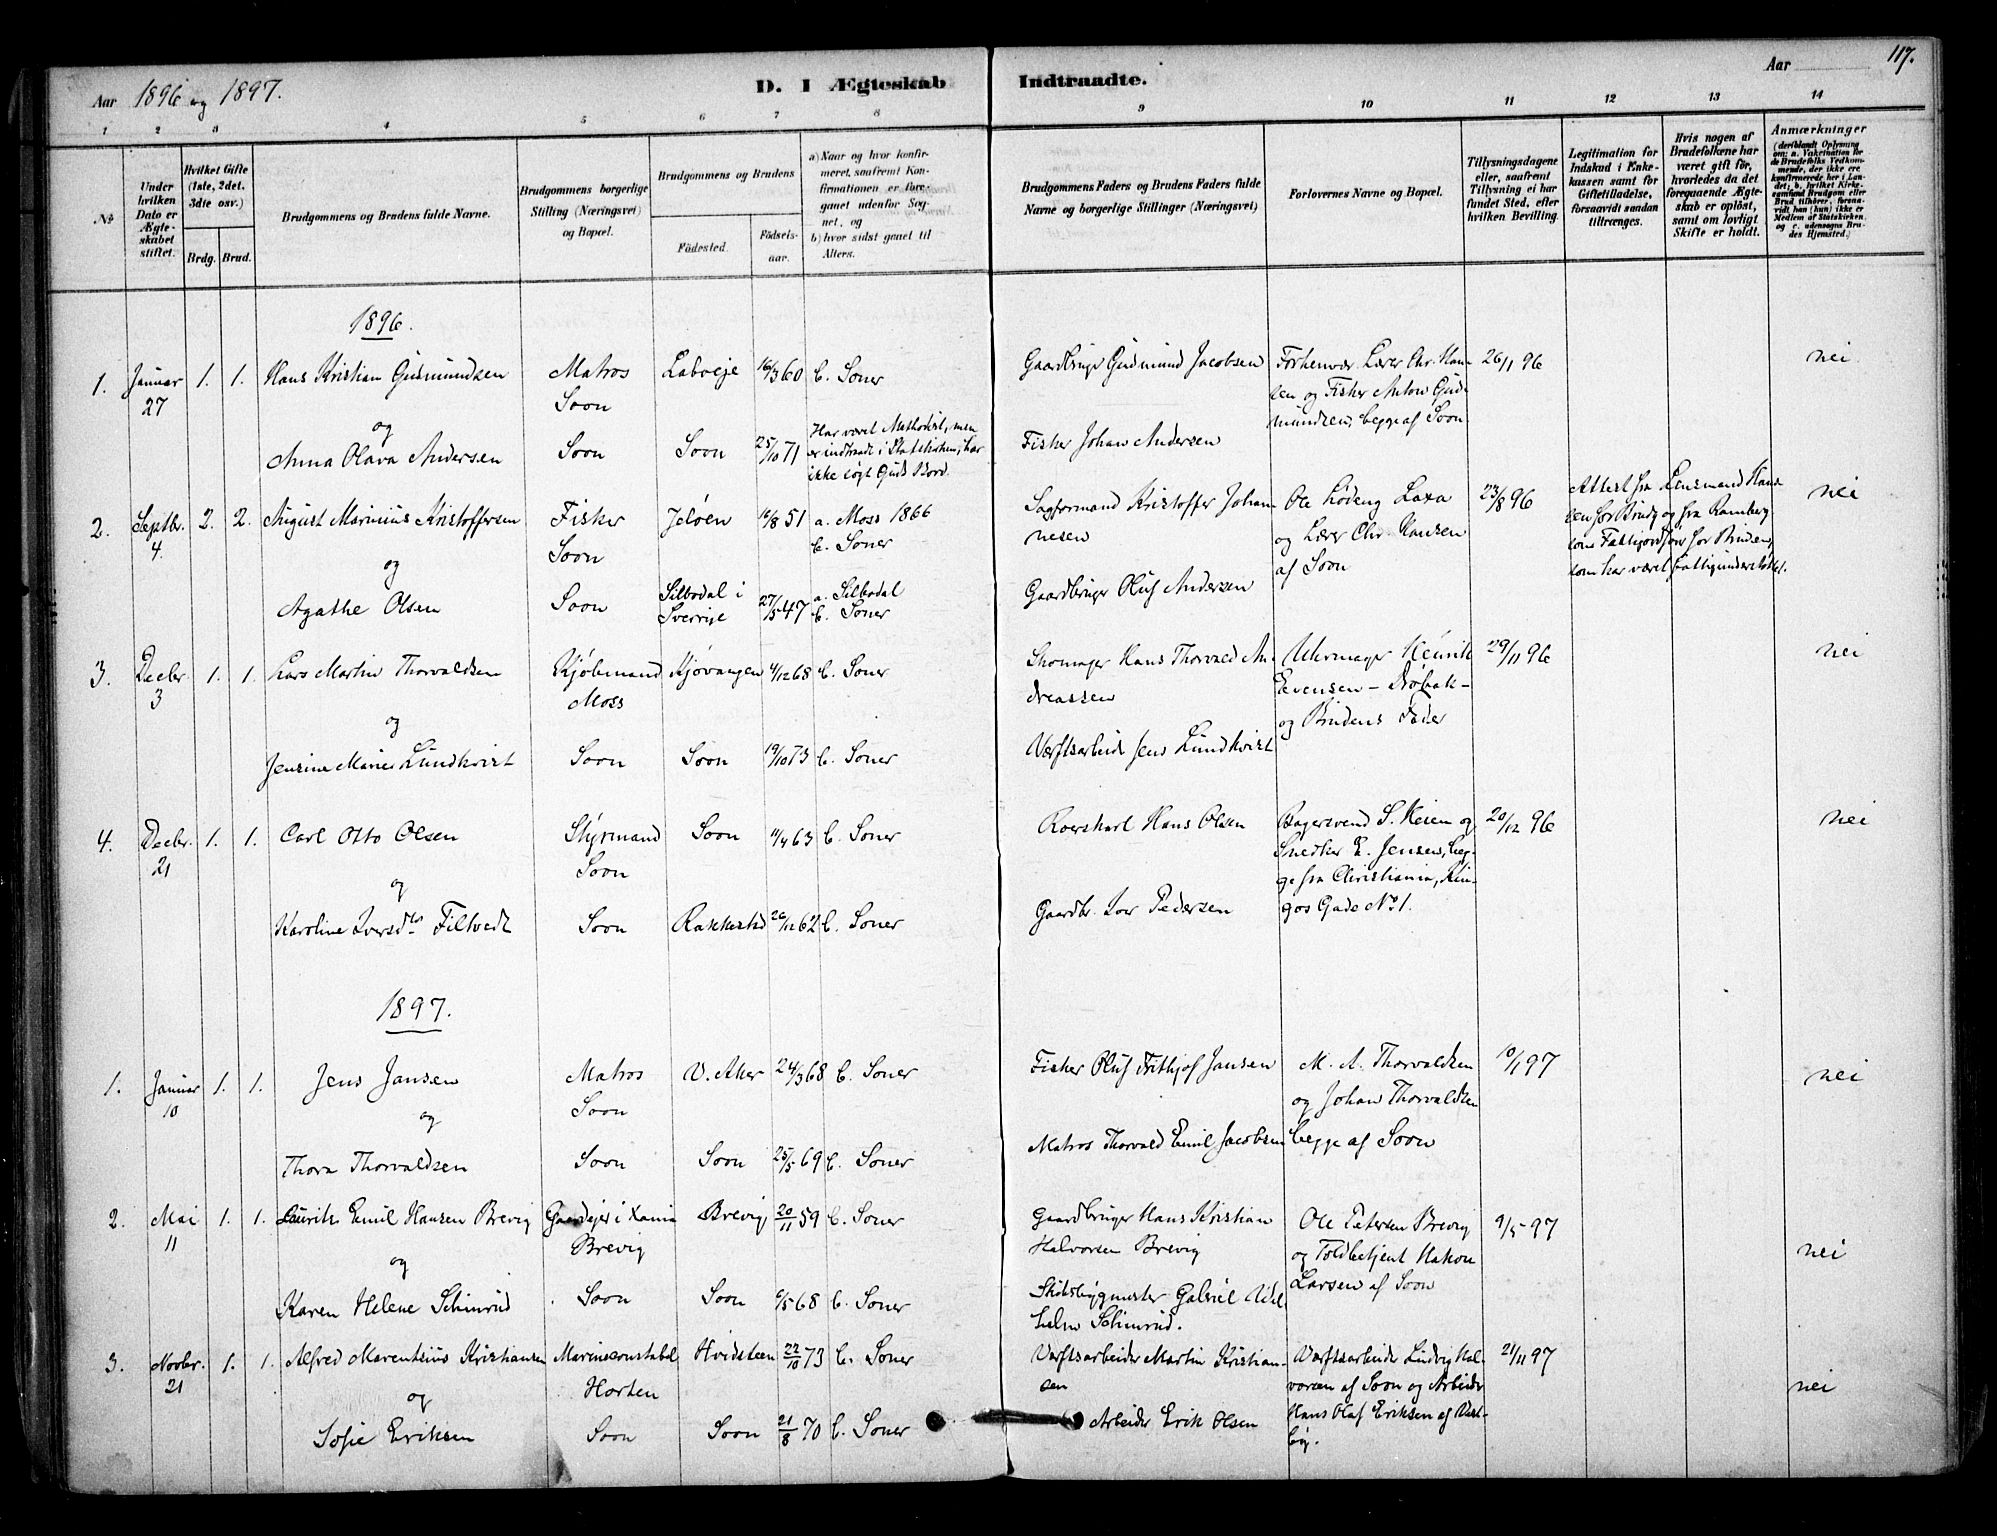 Aar 1896 og 1897.
D. I Ægteskab Indtraadte.
Aar
117.
1 2 3 4 5 6 7 8 9 10 11 12 13 14
№
Under hvilken Dato er Ægteskabet stiftet.
Hvilket Gifte (1ste, 2det, 3dte osv.)
Brdg. Brud.
Brudgommens og Brudens fulde Navne.
Brudgommens borgerlige Stilling (Næringsvei) og Bopæl.
Brudgommens og Brudens
Födested.
Födselsaar.
a) Naar og hvor konfirmeret, saafremt Konfirmationen er foregaaet udenfor Sognet, og
b) hvor sidst gaaet til Alters.
Brudgommens Faders og Brudens Faders fulde Navne og borgerlige Stillinger (Næringsvei)
Forlovernes Navne og Bopæl.
Tillysningsdagene eller, saafremt Tillysning ei har fundet Sted, efter hvilken Bevilling.
Legitimation for Indskud i Enkekassen samt for Giftetilladelse, forsaavidt saadan tiltrænges.
Hvis nogen af Brudefolkene har været gift för, hvorledes da det foregaaende Ægteskab er oplöst, samt om lovligt Skifte er holdt.
Anmærkninger
(deriblandt Oplysning om: a. Vakcination for de Brudefolks Vedkommende, der ikke ere konfirmerede her i Landet; b. hvilket Kirkesamfund Brudgom eller Brud tilhörer, forsaavidt han (hun) ikke er Medlem af Statskirken, og c. udensogns Brudes Hjemsted.)
1896.
1. Januar 27 1. 1. Hans Kristian Gudmundsen
Matros Soon
Laboeje 16/3 60 b. Soner
Gaardbruger Gudmund Jacobsen
Forhenvær. Lærer Chr. Hansen og Fisker Anton Gudmundsen, begge af Soon
26/1 96
nei
og
Anna Olava Andersen
Soon Soon 25/10 71
Har været Methodist, men er indtraadt i Statskirken, har ikke søgt Guds Bord.
Fisker Johan Andersen
2. Septbr. 4 2. 2. August Marinius Kristoffersen
Fisker Soon
Jeløen 16/8 51 a. Moss 1866
b. Soner
Sagformand Kristoffer Johannesen
Ole Lødeng Laxa og Lærer Chr. Hansen af Soon
23/8 96
Attest fra Lensmand Hansen for Brudg og fra Ramberg som Fattigforst. for Bruden, som har været fattigunderstøttet.
nei
og
Agathe Olsen
Soon
Silbodal i Sverrige
27/5 47 a. Silbodal
b. Soner
Gaardbruger Oluf Andersen
3. Decbr 3 1. 1. Lars Martin Thorvaldsen
Kjøbmand Moss
Kjøvangen 4/12 68 b. Soner
Skomager Hans Thorvald Andreassen
Uhrmager Henrik Evensen – Drøbak – og Brudens Fader
29/11 96
nei
og
Jensine Marie Lundkvist
Soon Soon 19/10 73 b. Soner
Værftsarbeid. Jens Lundkvist
4. Decbr. 21 1. 1. Carl Otto Olsen
Styrmand Soon
Soon 11/4 63 b. Soner
Roerskarl Hans Olsen
Bagersvend S. Heien og Snedker E. Jensen, begge fra Christiania, Ringos Gade No 1.
20/12 96
nei
og
Karoline Iversdtr Filtvedt
Soon Rakkestad 26/12 62 b. Soner
Gaardbr. Iver Pedersen
1897.
1. Januar 10 1. 1. Jens Jansen
Matros Soon
V. Aker 24/3 68 b. Soner
Fisker Oluf Frithjof Jansen
M. A. Thorvaldsen og Johan Thorvaldsen begge af Soon
10/1 97
nei
og
Thora Thorvaldsen
Soon Soon 25/5 69 b. Soner
Matros Thorvald Emil Jacobsen
2. Mai 11 1. 1. Laurits Emil Hansen Brevig
Gaardejer i Xania Brevig
Brevig 20/11 59 b. Soner
Gaardbruger Hans Kristian Halvorsen Brevig
Ole Petersen Brevig og Toldbetjent Hakon Larsen af Soon
9/5 97
nei
og
Karen Helene Schinrud
Soon Soon 6/5 68 b. Soner
Skibsbygmester Gabriel Vilhelm Schinrud.
3. Novbr. 21 1. 1. Alfred Marentsius Kristiansen
Marineconstabel Horten
Hvidsteen 22/10 73 b. Soner
Værftsarbeider Martin Kristiansen
Værftsarbeide Ludvig Halvorsen af Soon og Arbeider Hans Olaf Eriksen af Vestby.
21/11 97
nei
og
Sofie Eriksen
Soon Soon 21/8 70 b. Soner
Arbeider Erik Olsen